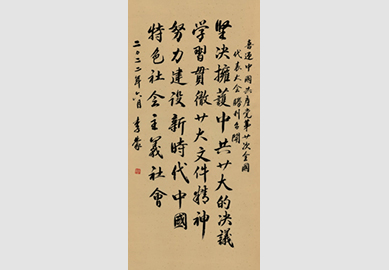 喜迎中國共産党第廿次全國
代表大会勝利召開
堅决擁護中共廿大的决議
学習貫徹廿大文件精神
努力建設新時代中國
特色社会主義社會
二〇二二年六月 李